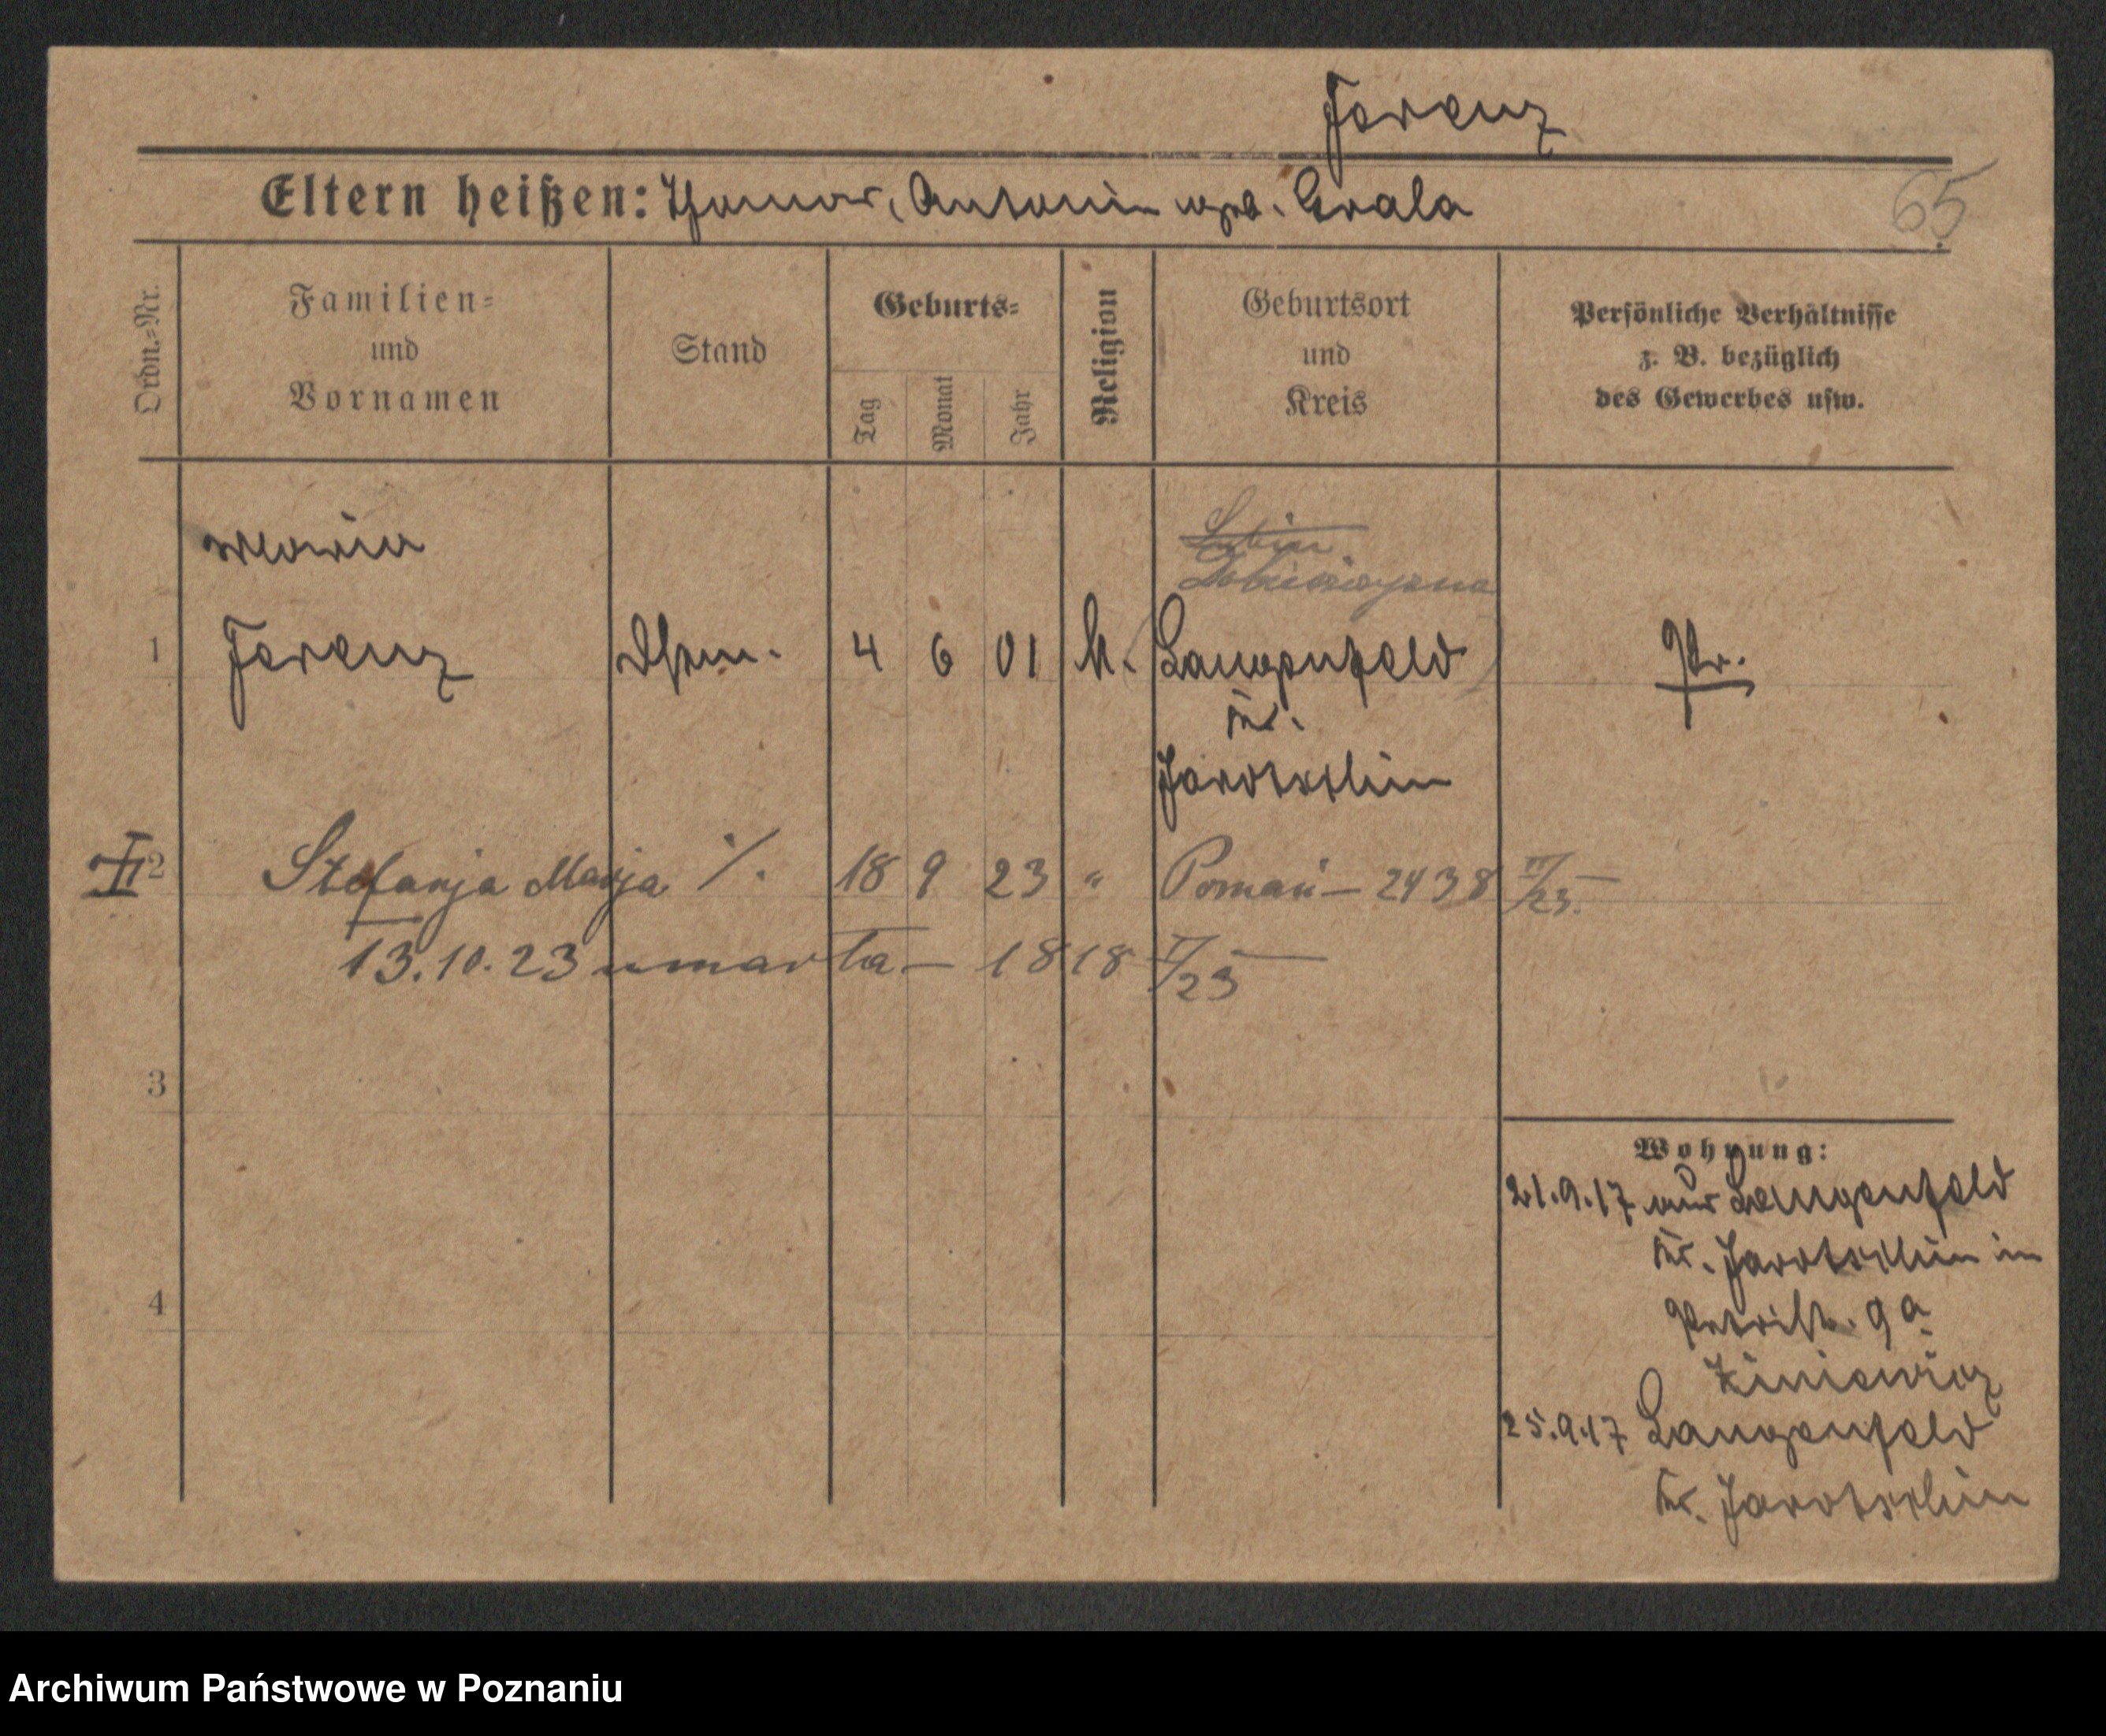 Ferenz
Eltern heißen: Thomas, Antonie geb. Grala
65
Ordn.=Nr.
Familien=
und
Vornamen
Stand
Geburts=
Tag
Monat
Jahr
Religion
Geburtsort
und
Kreis
Persönliche Verhältnisse
z. B. bezüglich
des Gewerbes usw.
Maria
Lubin
1 Ferenz 4 6 01 k. Langenfeld Pr.
Kr.
Jarotschin
II 2 Stefanja Marja ·/. 18 9 23 " Poznań — 2438 III/23.
13.10.23 umarła — 1818 II/23
3
4
Wohnung:
21.9.17 aus Langenfeld
Kr. Jarotschin in
Petristr. 9a
25.9.17 Langenfeld
Kr. Jarotschin
Archiwum Państwowe w Poznaniu